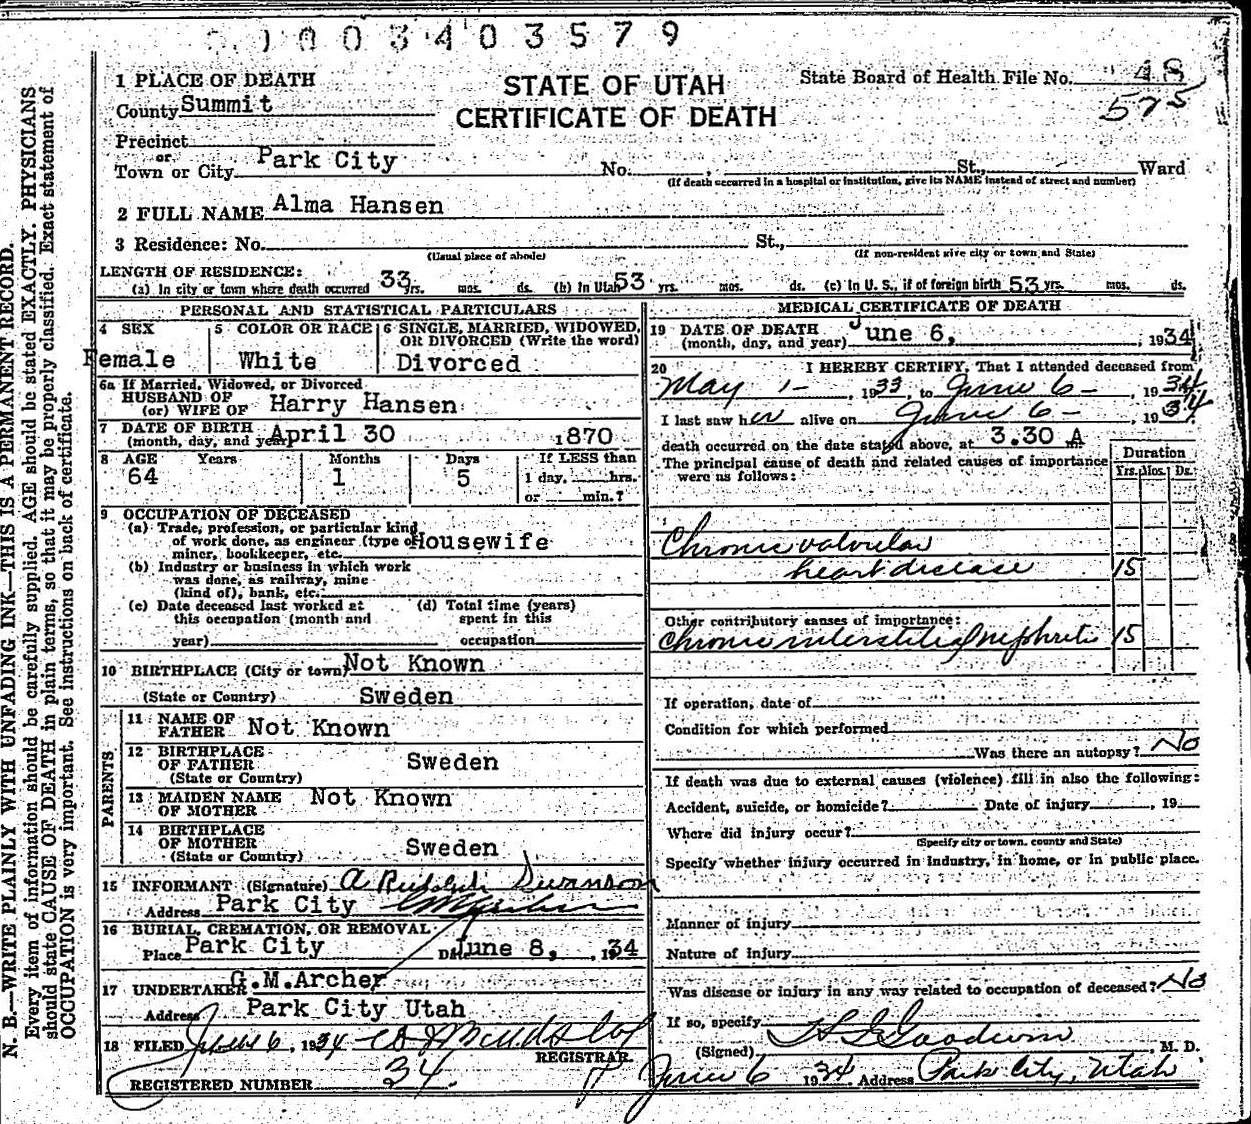 0003403579
N. B.—WRITE PLAINLY WITH UNFADING INK—THIS IS A PERMANENT RECORD.
Every item of information should be carefully supplied. AGE should be stated EXACTLY. PHYSICIANS
should state CAUSE OF DEATH in plain terms, so that it may be properly classified. Exact statement of
OCCUPATION is very important. See instructions on back of certificate.
1 PLACE OF DEATH
STATE OF UTAH
CERTIFICATE OF DEATH
State Board of Health File No. 48
575
County Summit
Precinct
or
Town or City Park City No. St., Ward
(If death occurred in a hospital or institution, give its NAME instead of street and number)
2 FULL NAME Alma Hansen
3 Residence: No. St.,
(Usual place of abode) (If non-resident give city or town and State)
LENGTH OF RESIDENCE:
(a) In city or town where death occurred 33 yrs. mos. ds. (b) In Utah 53 yrs. mos. ds. (c) In U. S., if of foreign birth 53 yrs. mos. ds.
PERSONAL AND STATISTICAL PARTICULARS
4 SEX
Female
5 COLOR OR RACE
White
6 SINGLE, MARRIED, WIDOWED,
OR DIVORCED (Write the word)
Divorced
6a If Married, Widowed, or Divorced
HUSBAND OF
(or) WIFE OF Harry Hansen
7 DATE OF BIRTH
(month, day, and year) April 30 1870
8 AGE Years Months Days If LESS than
64 1 5 1 day, hrs.
or min.?
9 OCCUPATION OF DECEASED
(a) Trade, profession, or particular kind
of work done, as engineer (type of
miner, bookkeeper, etc. Housewife
(b) Industry or business in which work
was done, as railway, mine
(kind of), bank, etc.
(c) Date deceased last worked at
this occupation (month and
year)
(d) Total time (years)
spent in this
occupation
10 BIRTHPLACE (City or town) Not Known
(State or Country) Sweden
PARENTS
11 NAME OF
FATHER Not Known
12 BIRTHPLACE
OF FATHER Sweden
(State or Country)
13 MAIDEN NAME
OF MOTHER Not Known
14 BIRTHPLACE
OF MOTHER Sweden
(State or Country)
15 INFORMANT (Signature) A Rudolph Swanson
Address Park City
16 BURIAL, CREMATION, OR REMOVAL
Place Park City Date June 8, 1934
17 UNDERTAKER G.M.Archer
Address Park City Utah
18 FILED June 6, 1934
REGISTRAR.
REGISTERED NUMBER 34.
MEDICAL CERTIFICATE OF DEATH
19 DATE OF DEATH
(month, day, and year) June 6, 1934
20 I HEREBY CERTIFY, That I attended deceased from
May 1- 1933, to June 6- 1934
I last saw her alive on June 6- 1934
death occurred on the date stated above, at 3.30 A m
The principal cause of death and related causes of importance
were as follows:
Duration
Yrs. Mos. Ds.
Chronic valvular
heart disease 15
Other contributory causes of importance:
Chronic interstitial nephritis 15
If operation, date of
Condition for which performed
Was there an autopsy? No
If death was due to external causes (violence) fill in also the following:
Accident, suicide, or homicide? Date of injury , 19
Where did injury occur?
(Specify city or town, county and State)
Specify whether injury occurred in industry, in home, or in public place.
Manner of injury
Nature of injury
Was disease or injury in any way related to occupation of deceased? No
If so, specify
(Signed) Goodwin M. D.
June 6 1934. Address Park City, Utah